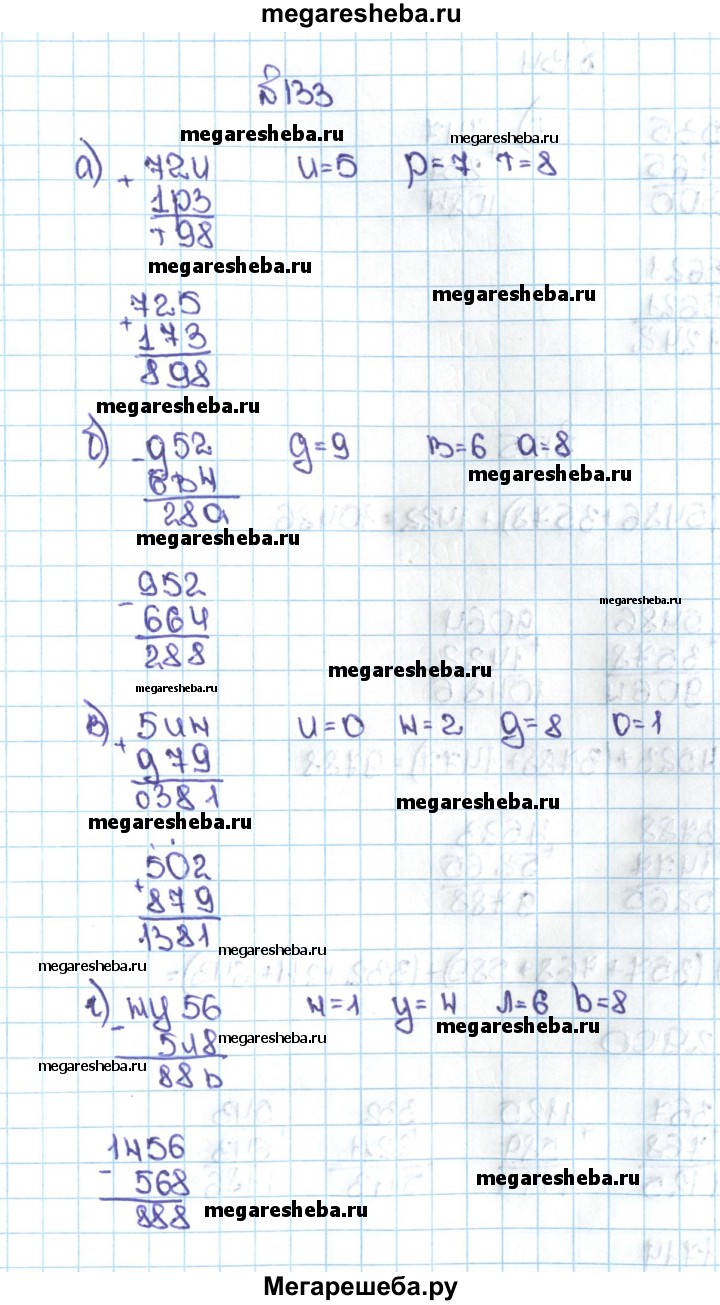 megaresheba.ru
№133
megaresheba.ru megaresheba.ru
а) + 72и и=5 р=7 т=8
1р3
т98
megaresheba.ru
megaresheba.ru
+ 725
173
898
megaresheba.ru
б) - д52 д=9 в=6 а=8
6в4 megaresheba.ru
28а
megaresheba.ru
- 952 megaresheba.ru
664
288 megaresheba.ru
megaresheba.ru
в) + 5и н и=0 н=2 д=8 о=1
д79
о381 megaresheba.ru
megaresheba.ru
+ 502
879
1381 megaresheba.ru
megaresheba.ru
г) - ну56 н=1 у=4 л=6 ь=8
5л8 megaresheba.ru megaresheba.ru
88ь megaresheba.ru
- 1456
568 megaresheba.ru
888 megaresheba.ru
Мегарешеба.ру